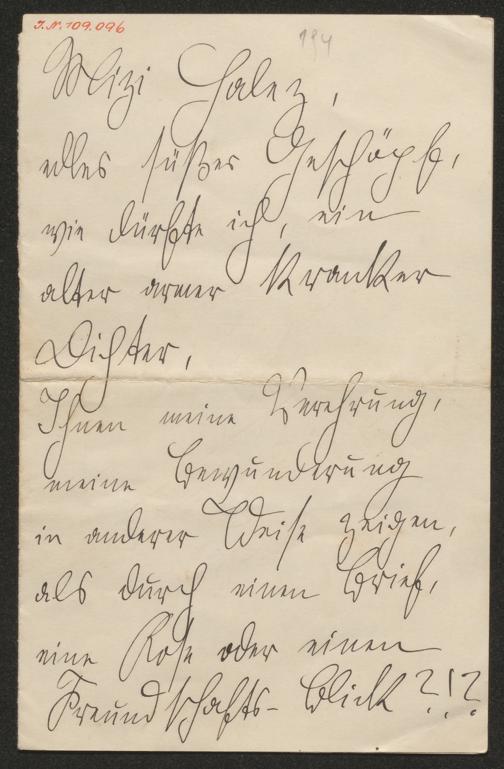 J.N. 109.096
194
Mizi Halez,
edles süßes Geschöpf,
wie dürfte ich, ein
alter armer Kranker
Dichter,
Ihnen meine Verehrung,
meine Bewunderung
in anderer Weise zeigen,
als durch einen Brief,
eine Rose oder einen
Freundschafts-Blick?!?